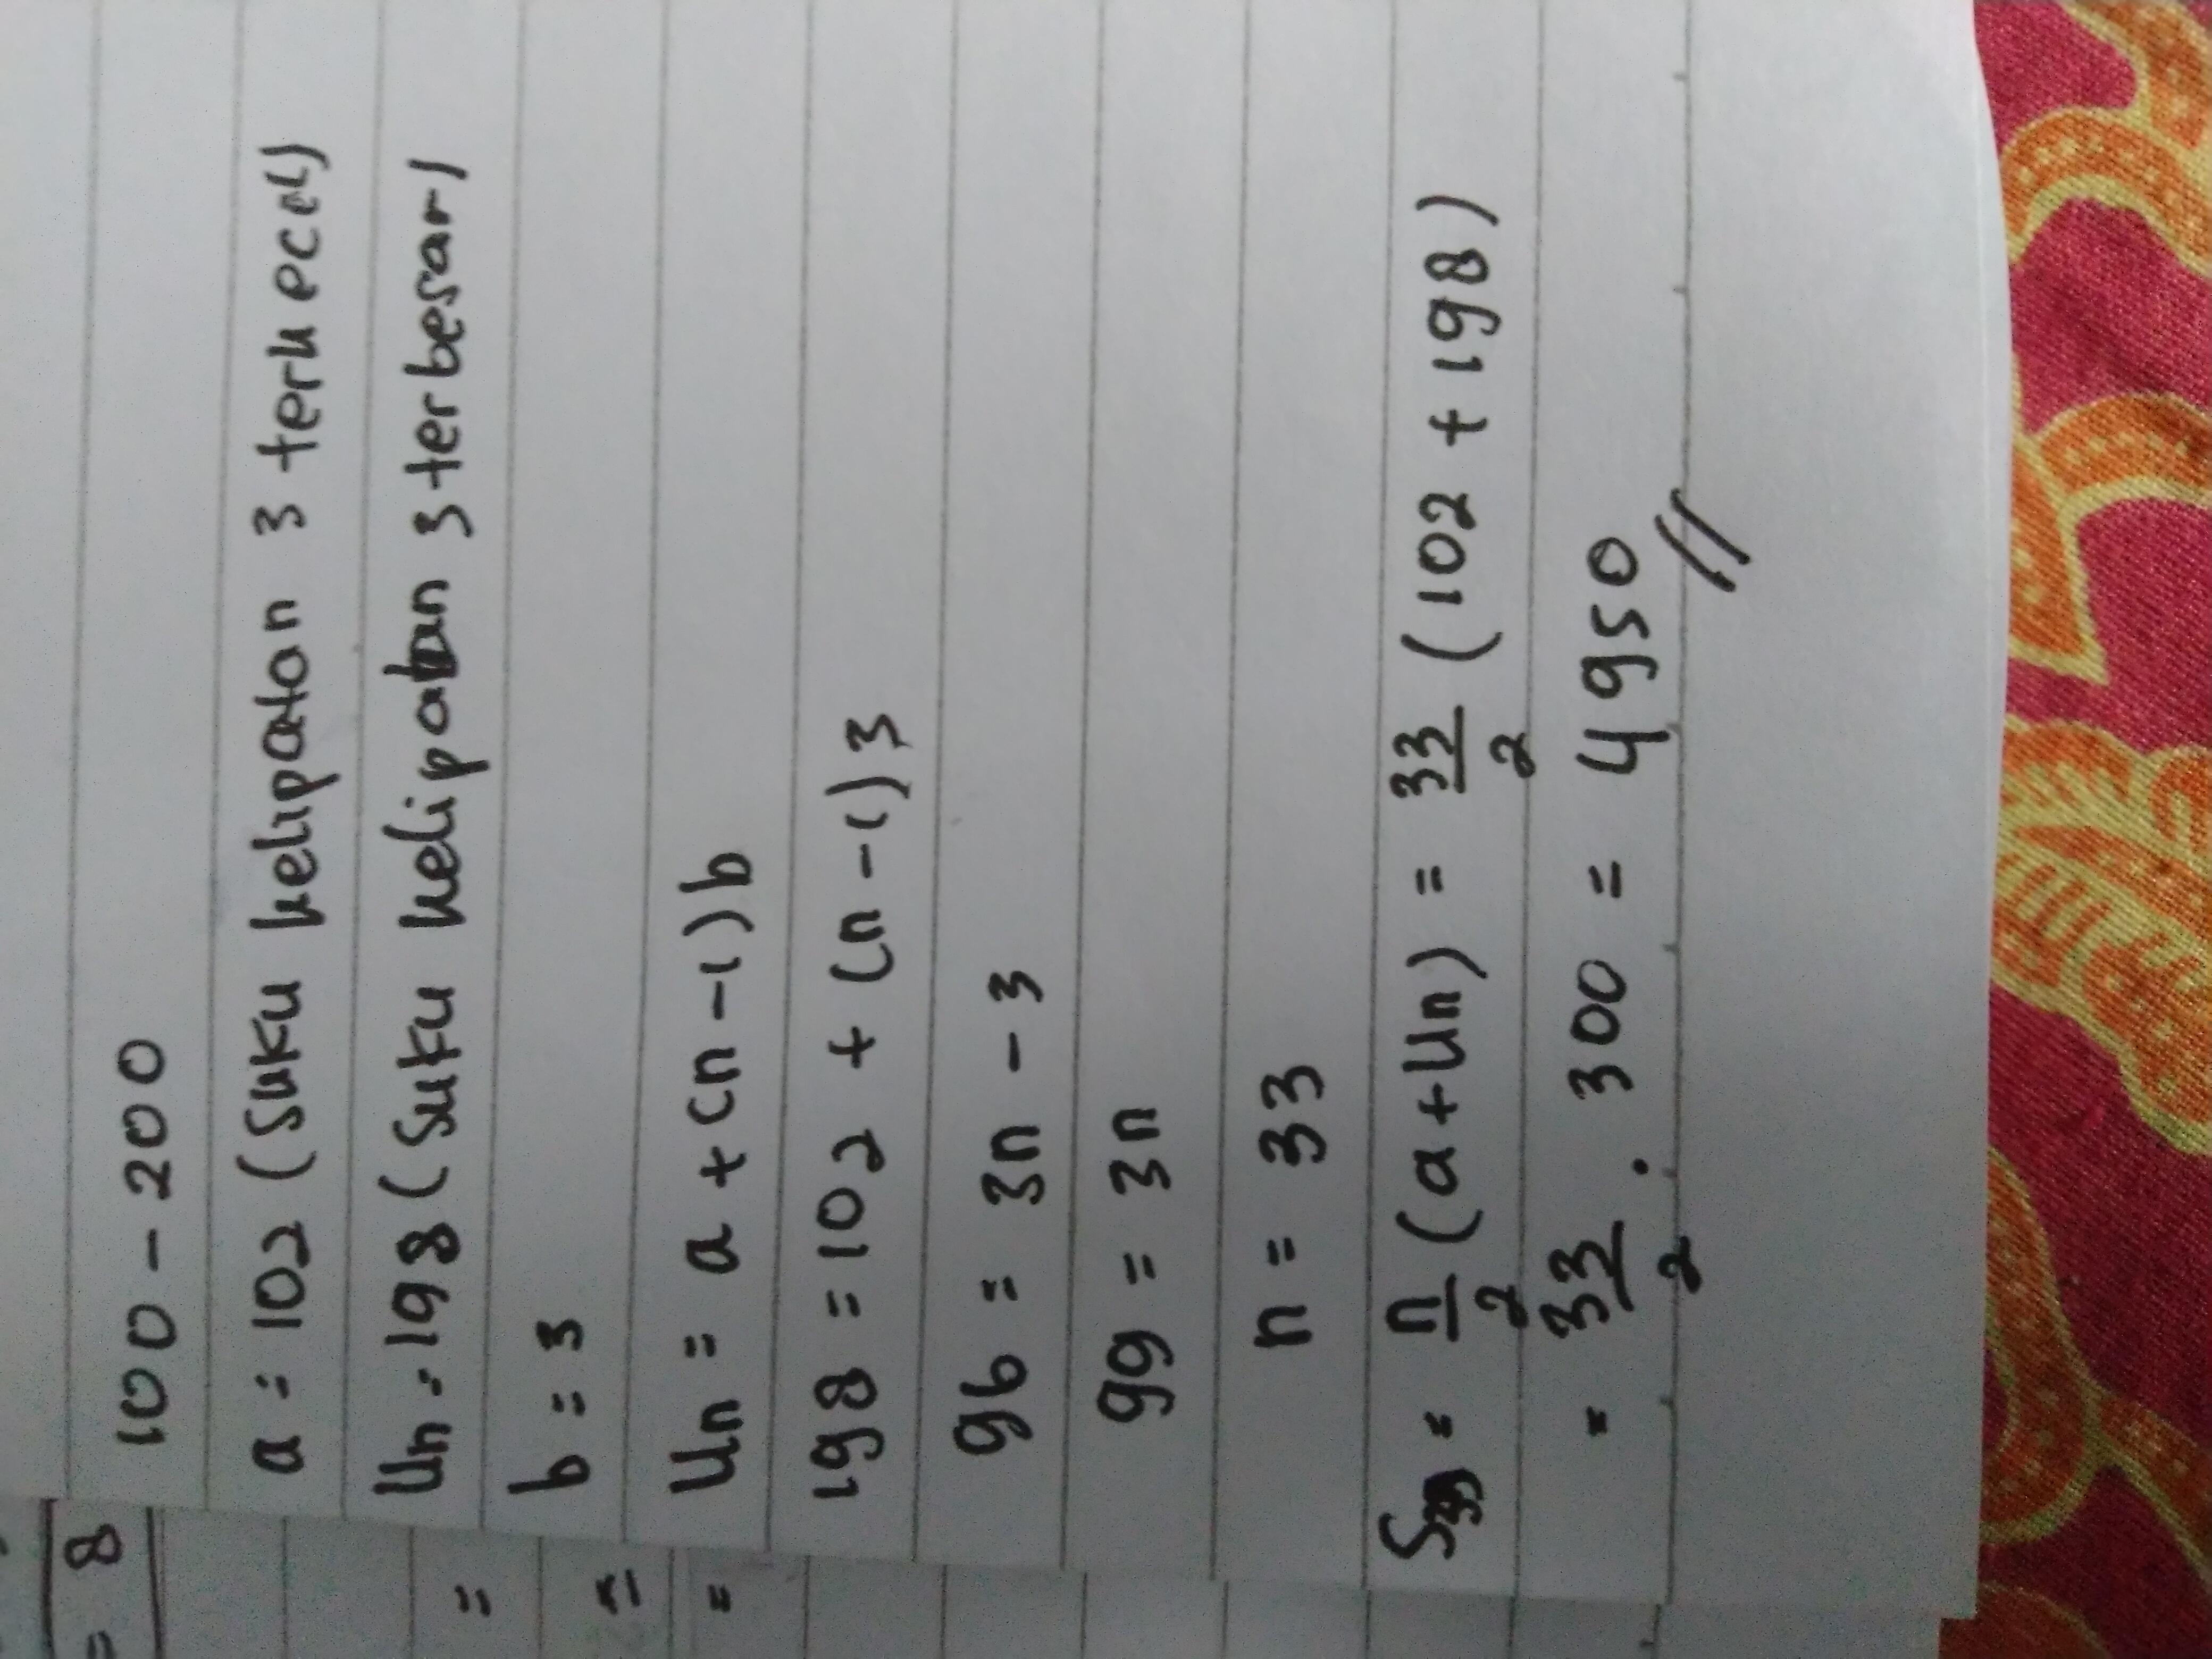 100 - 200
a = 102 (suku kelipatan 3 terkecil)
Un = 198 (suku kelipatan 3 terbesar)
b = 3
Un = a + (n-1)b
198 = 102 + (n-1)3
96 = 3n - 3
99 = 3n
n = 33
S33 = n/2 (a+Un) = 33/2 (102 + 198)
= 33/2 . 300 = 4950
= 8
=
=